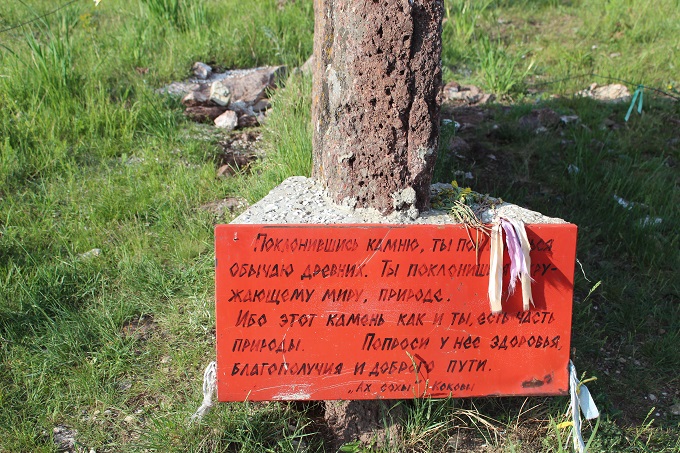 Поклонившись камню, ты по
обычаю древних. Ты поклони
жающему миру, природе.
Ибо этот камень как и ты, есть часть
природы. Попроси у нее здоровья,
благополучия и доброго пути.
„Ах сохы"